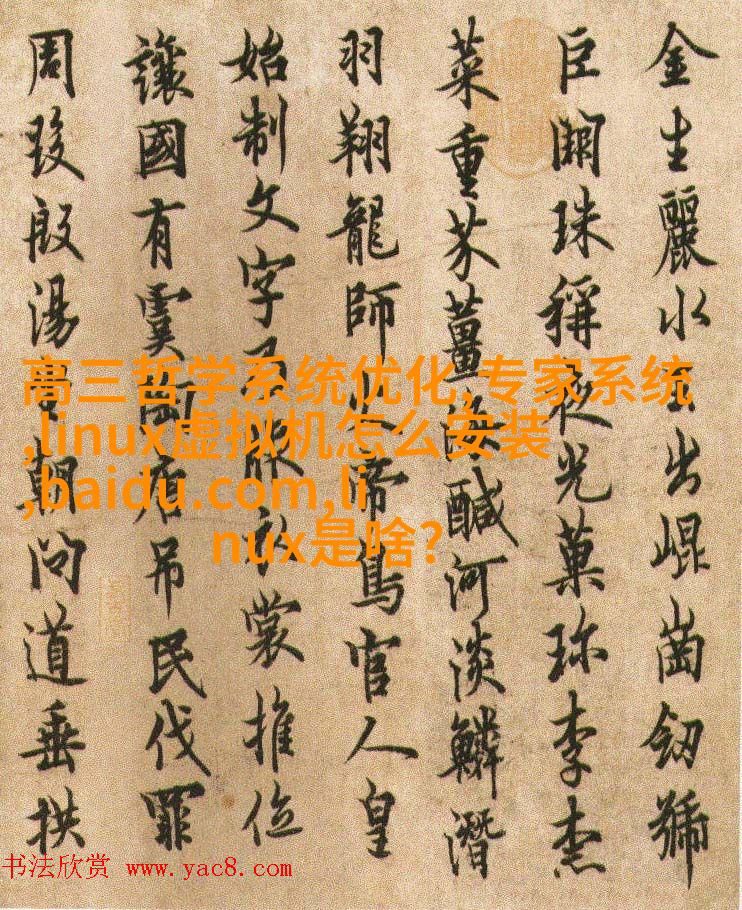 金生麗水玉出崐崗劒號
巨闕珠稱夜光菓珎李柰
菜重芥薑海鹹河淡鱗潛
羽翔龍師火帝鳥官人皇
始制文字乃服衣裳推位
讓國有虞陶唐吊民伐罪
周發殷湯坐朝問道垂拱
高三哲学系统优化,专家系统
,linux虚拟机怎么安装
,baidu.com,li
nux是啥?
书法欣赏 www.yac8.com